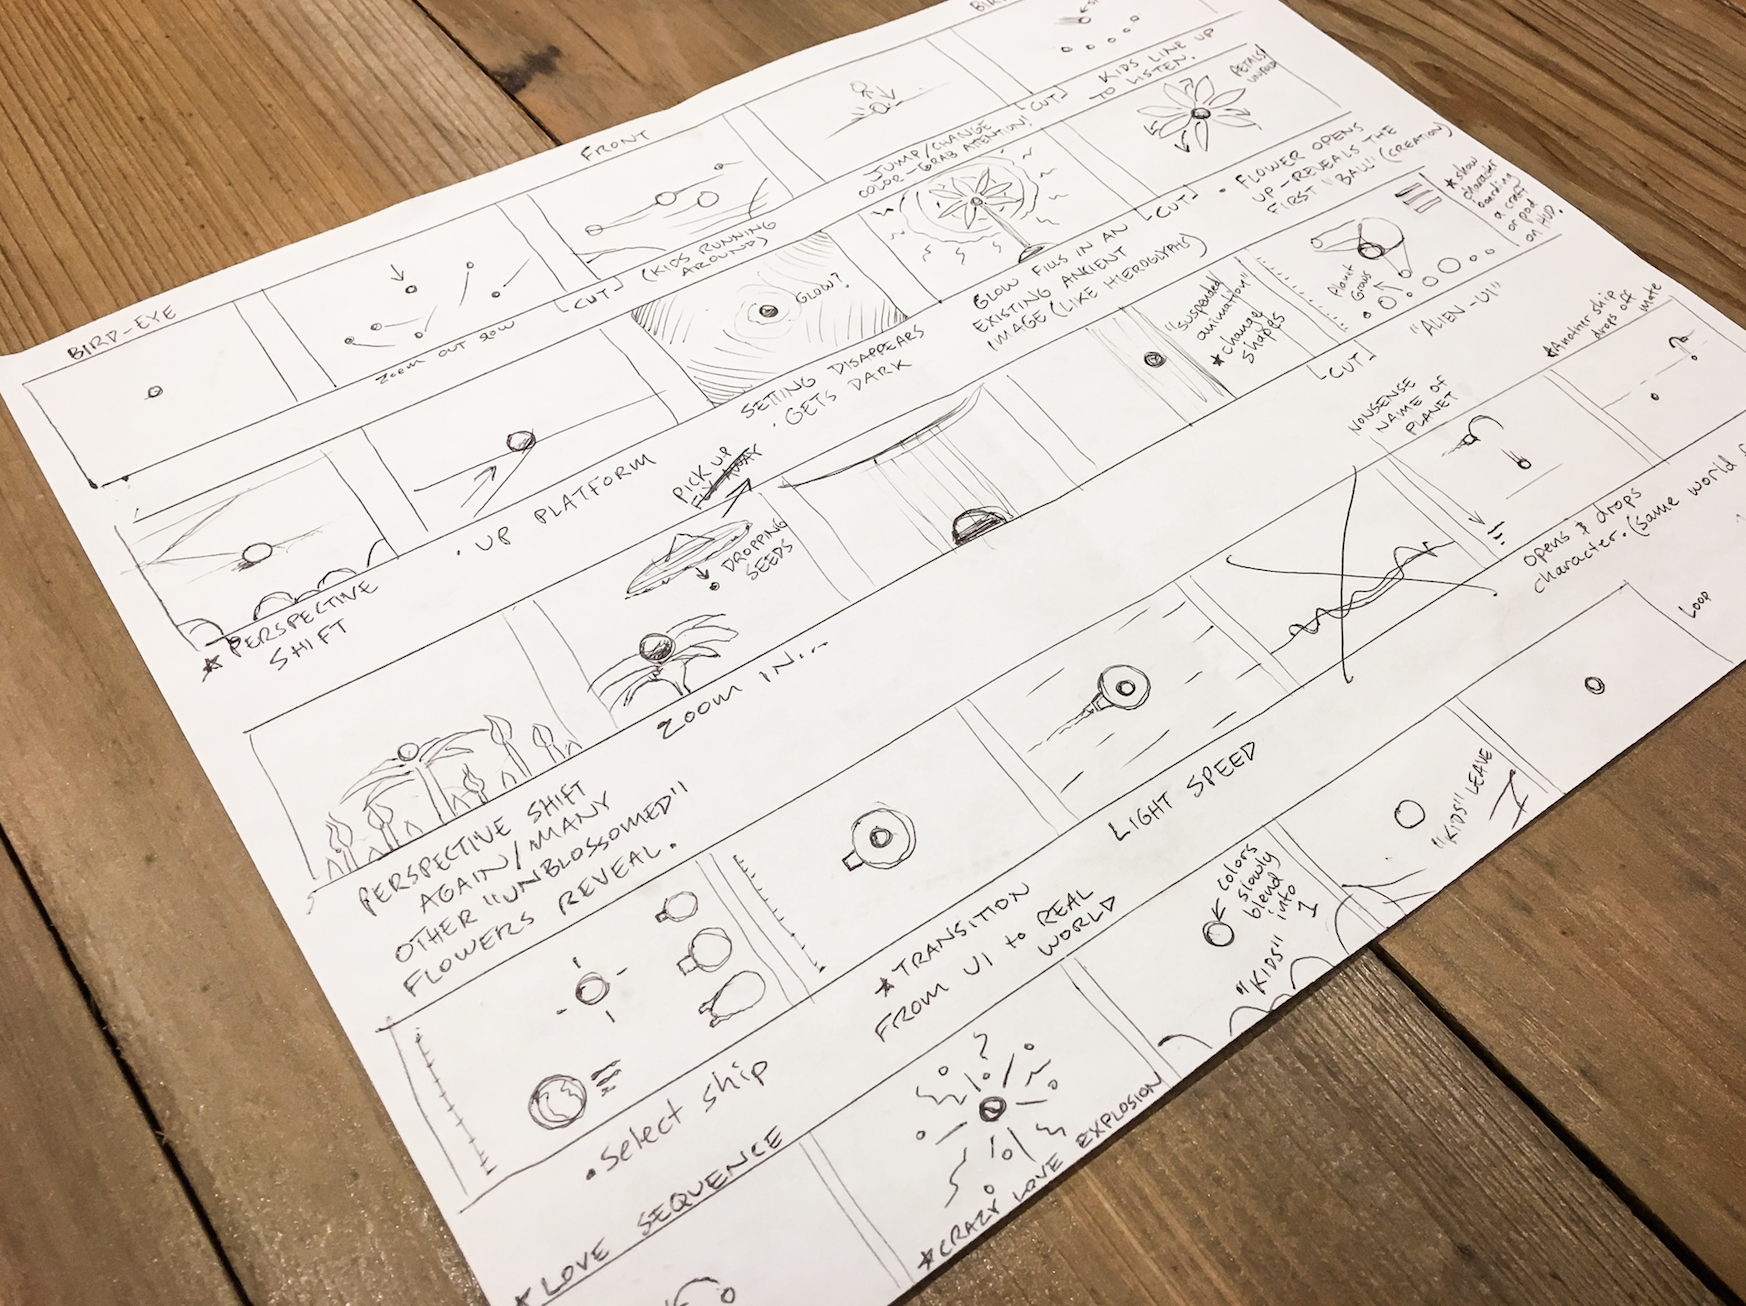 BIRD-EYE
ZOOM OUT SLOW
FRONT
[CUT]
(KIDS RUNNING
AROUNDS)
JUMP/CHANGE
COLOR-GRAB ATTENTION!
[CUT]
KIDS LINE UP
TO LISTEN.
★ PERSPECTIVE
SHIFT
• UP PLATFORM
GLOW?
SETTING DISAPPEARS
• GETS DARK
GLOW FILLS IN AN
EXISTING ANCIENT
IMAGE (LIKE HIEROGLYPHS)
[CUT]
PETALS
UNFOLD
• FLOWER OPENS
UP-REVEALS THE
FIRST "BALL" (CREATION)
PERSPECTIVE SHIFT
AGAIN/MANY
OTHER "UNBLOSSOMED"
FLOWERS REVEAL.
PICK UP
FLY AWAY
DROPPING
SEEDS
ZOOM IN...
"suspended
animation"
★ change
shapes
[CUT]
Planet
Grows
"ALIEN-UI"
★ show
character
boarding
a craft
or pod
on HUD.
• Select ship
★ TRANSITION
FROM UI to REAL
WORLD
LIGHT SPEED
NONSENSE
NAME OF
PLANET
opens & drops
character. (same world
★ Another ship
drops off
mate
★ LOVE SEQUENCE
★ CRAZY LOVE EXPLOSION
colors
slowly
blend
into
1
"KIDS"
"KIDS" LEAVE
LOOP